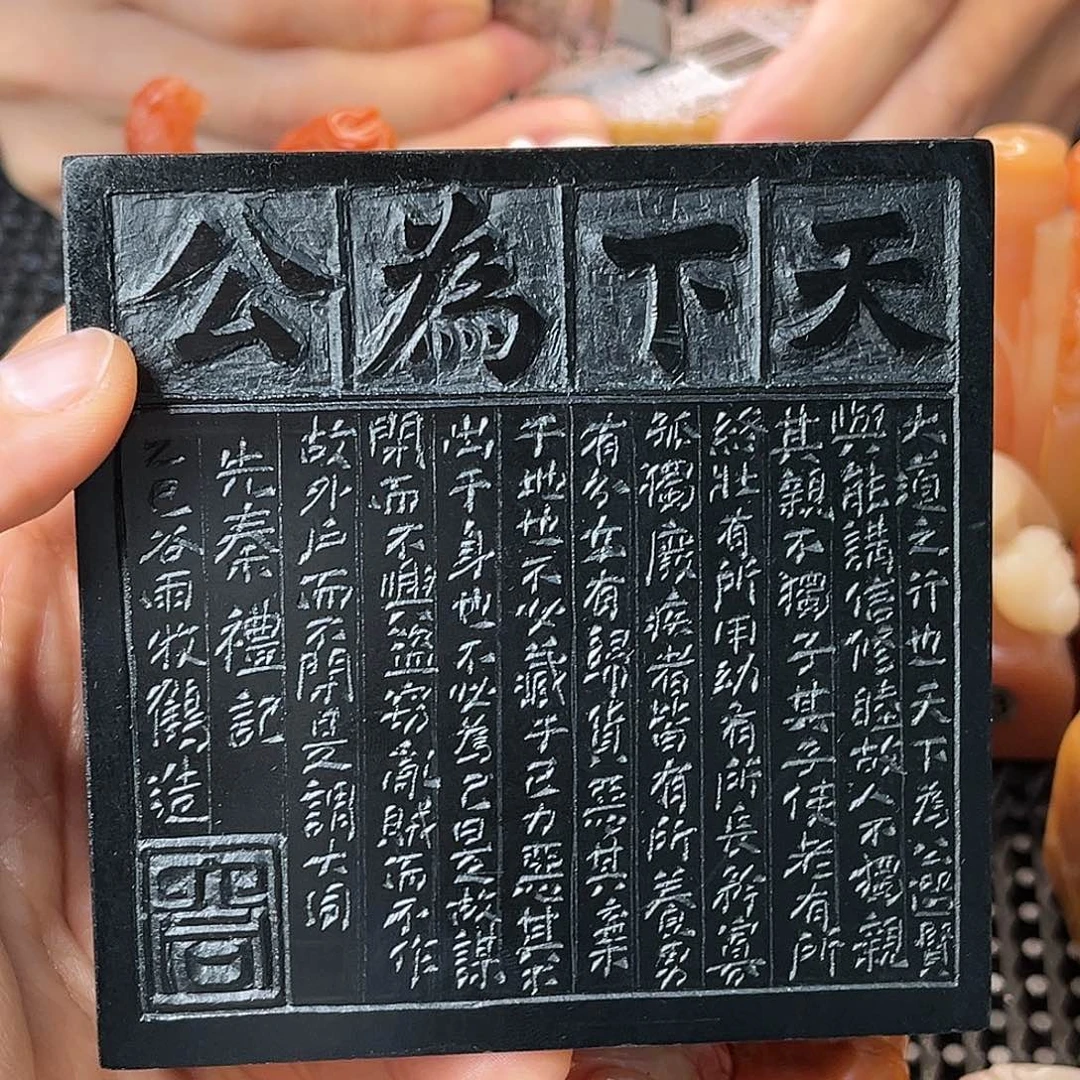 天下為公
大道之行也天下為公選賢
與能講信修睦故人不獨親
其親不獨子其子使老有所
終壯有所用幼有所長矜寡
孤獨廢疾者皆有所養男
有分女有歸貨惡其棄
于地也不必藏于己力惡其不
出于身也不必為己是故謀
閉而不興盜竊亂賊而不作
故外戶而不閉是謂大同
先秦禮記
乙巳谷雨牧鶴造